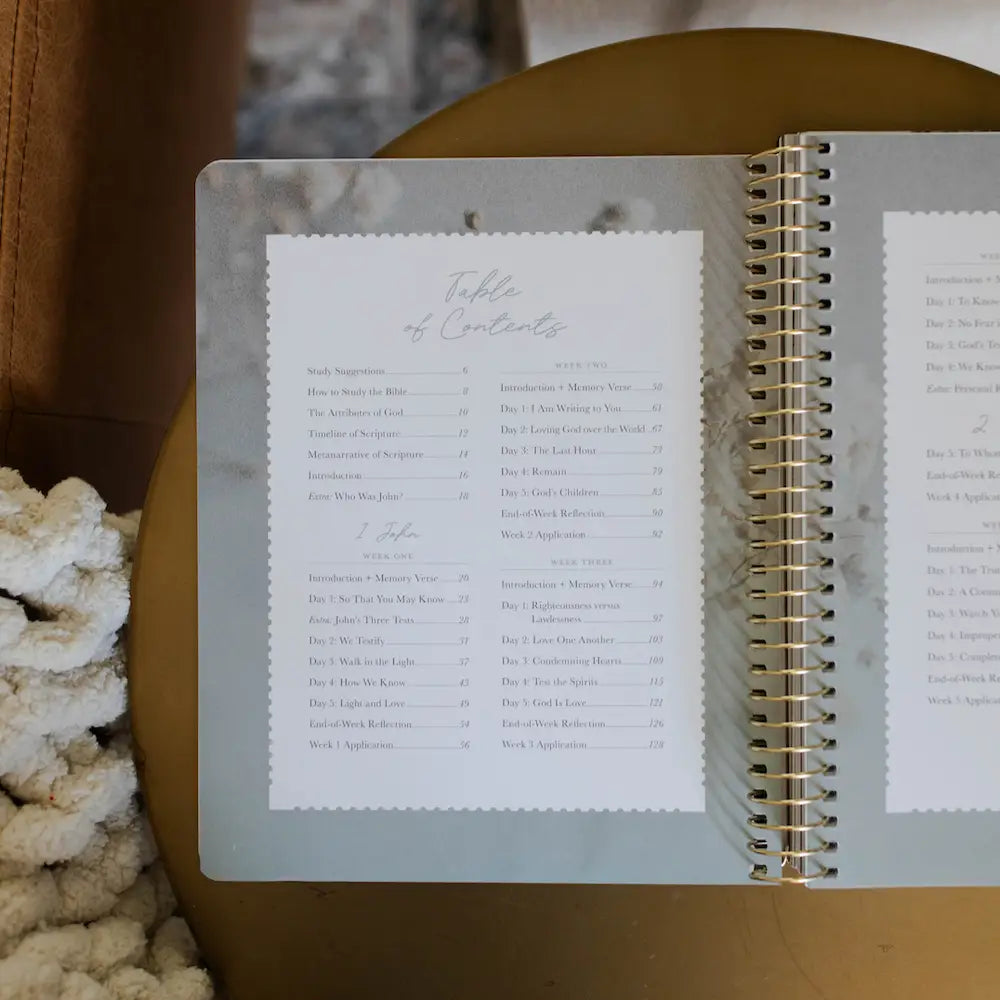 Table
of Contents
Study Suggestions 6
How to Study the Bible 8
The Attributes of God 10
Timeline of Scripture 12
Metanarrative of Scripture 14
Introduction 16
Extra: Who Was John? 18
1 John
WEEK ONE
Introduction + Memory Verse 20
Day 1: So That You May Know 23
Extra: John's Three Tests 28
Day 2: We Testify 31
Day 3: Walk in the Light 37
Day 4: How We Know 43
Day 5: Light and Love 49
End-of-Week Reflection 54
Week 1 Application 56
WEEK TWO
Introduction + Memory Verse 58
Day 1: I Am Writing to You 61
Day 2: Loving God over the World 67
Day 3: The Last Hour 73
Day 4: Remain 79
Day 5: God's Children 85
End-of-Week Reflection 90
Week 2 Application 92
WEEK THREE
Introduction + Memory Verse 94
Day 1: Righteousness versus
Lawlessness 97
Day 2: Love One Another 103
Day 3: Condemning Hearts 109
Day 4: Test the Spirits 115
Day 5: God Is Love 121
End-of-Week Reflection 126
Week 3 Application 128
Introduction + M
Day 1: To Know
Day 2: No Fear i
Day 3: God's Te
Day 4: We Know
Extra: Personal
2
Day 5: To Whom
End-of-Week Re
Week 4 Applicat
Introduction +
Day 1: The Trut
Day 2: A Comm
Day 3: Watch Yo
Day 4: Imprope
Day 5: Complet
End-of-Week Re
Week 5 Applica